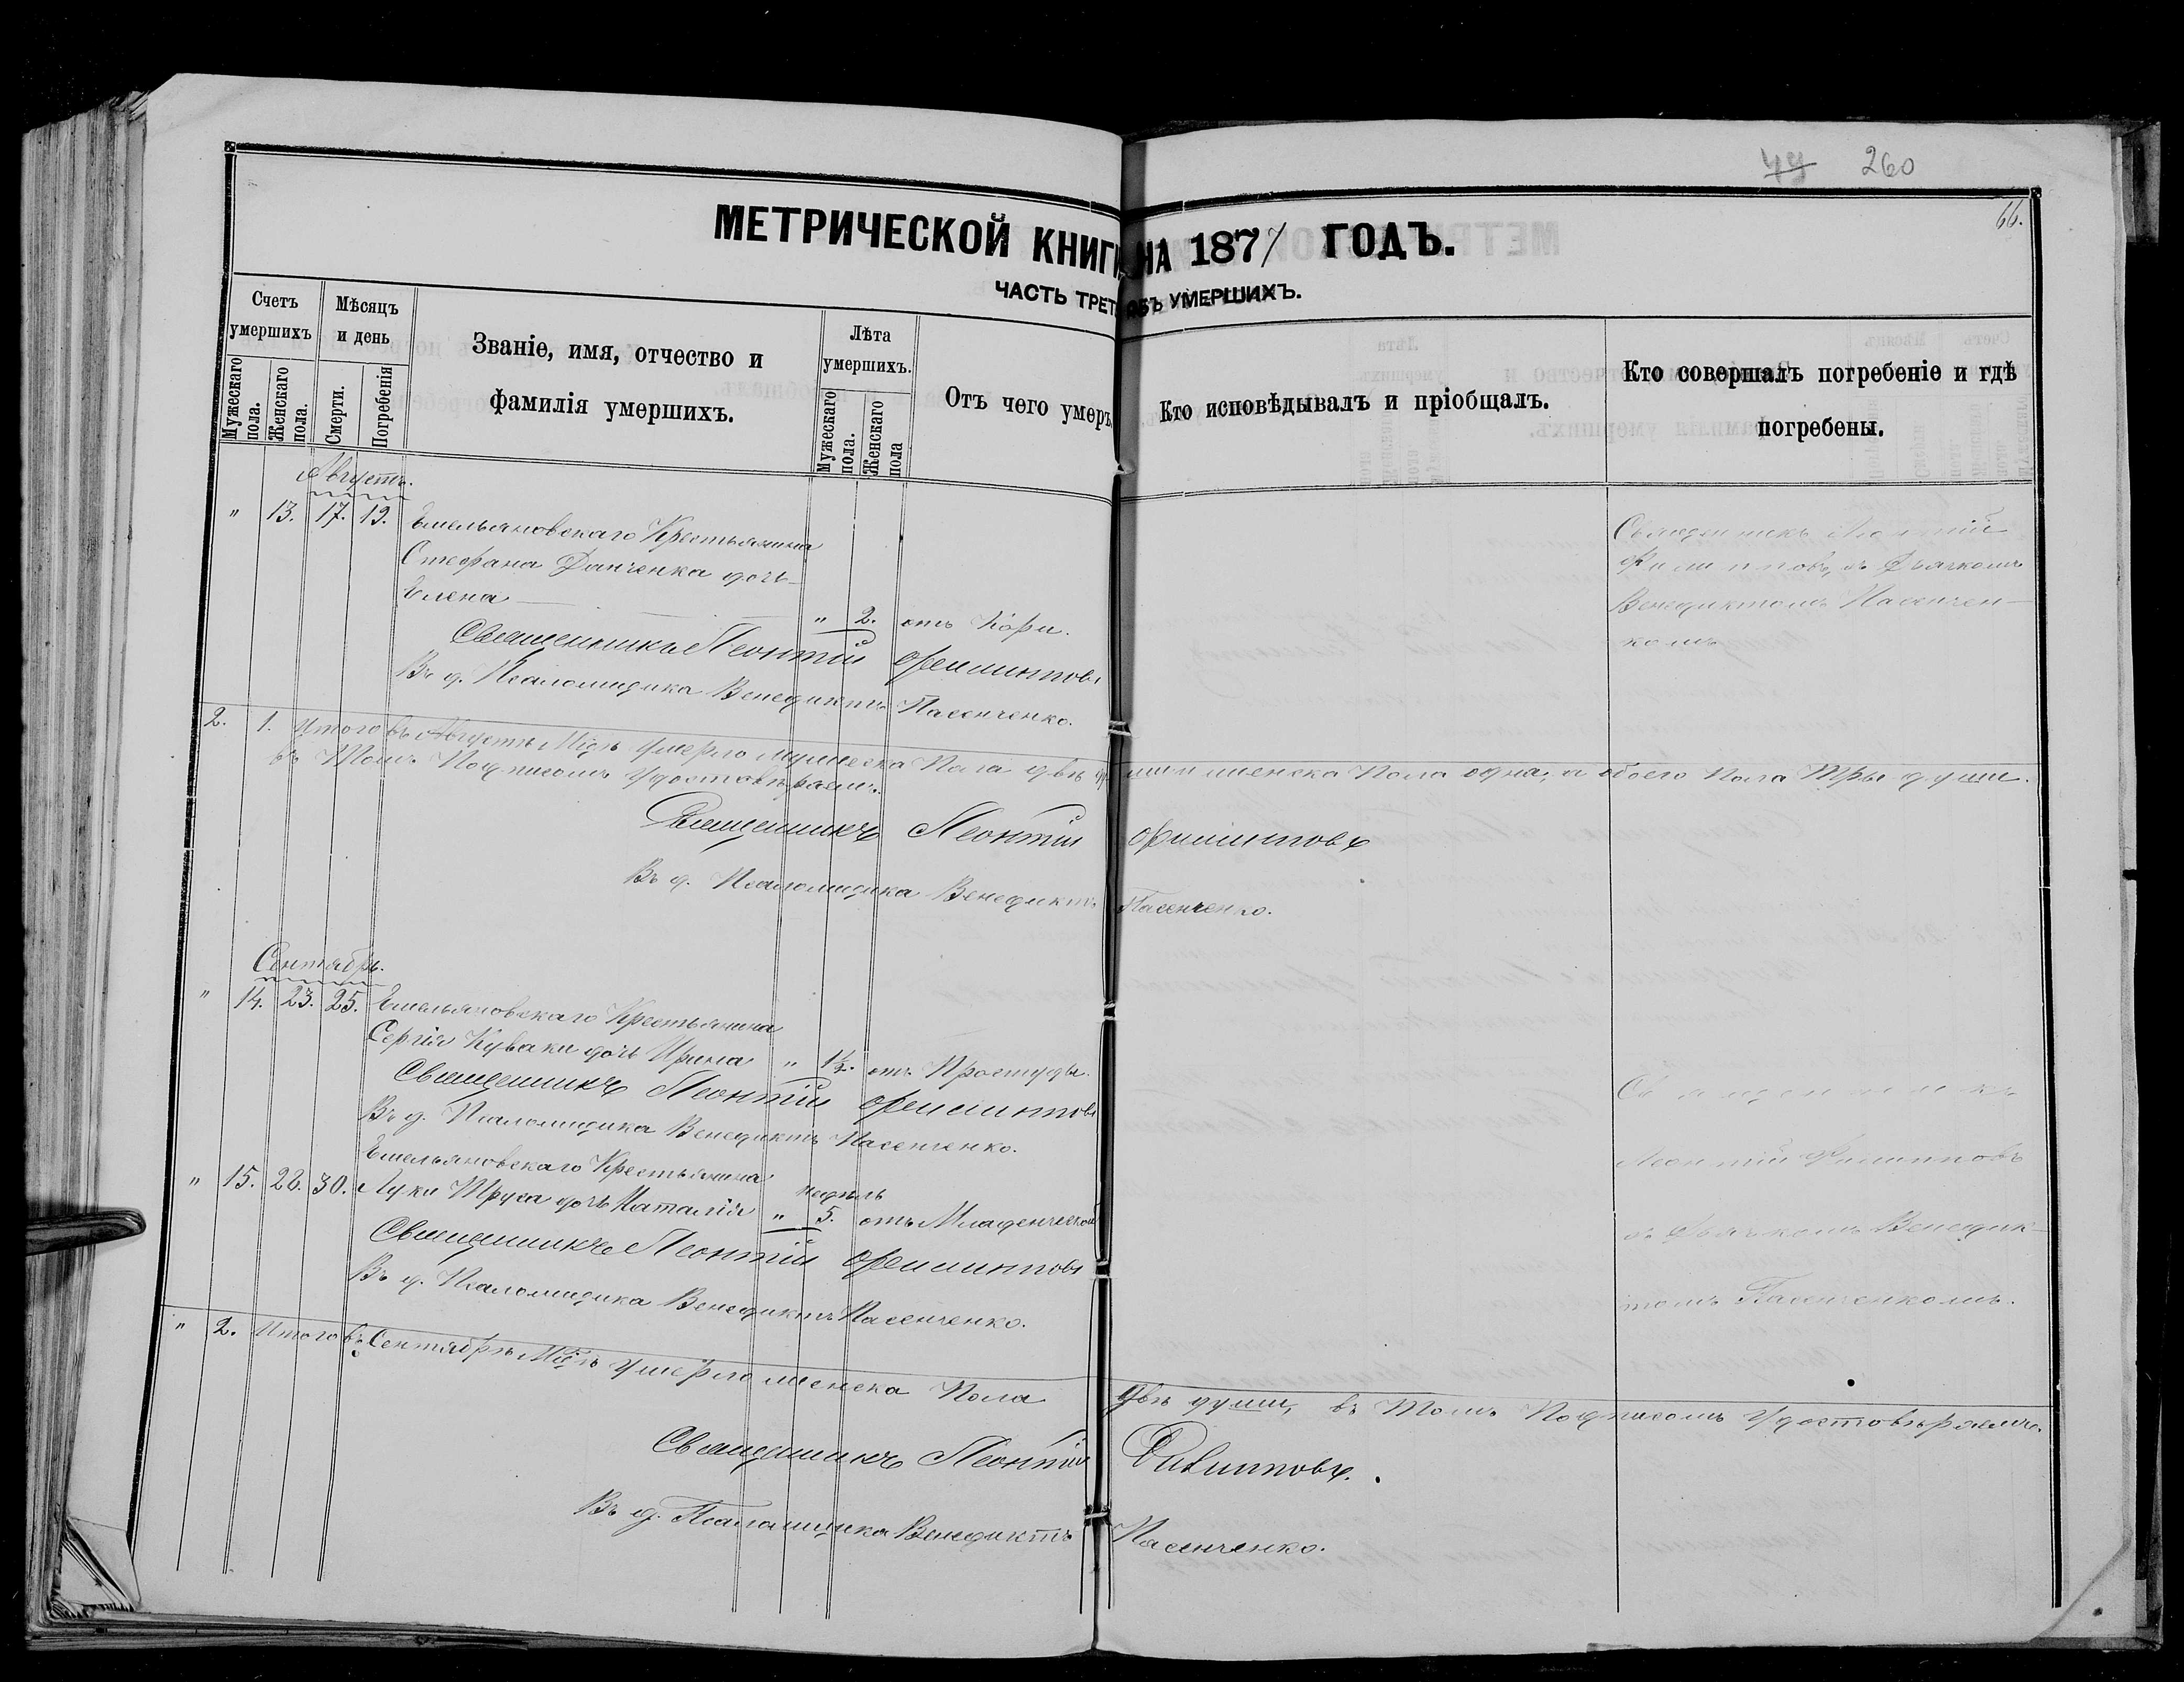 77 260
66.
МЕТРИЧЕСКОЙ КНИГИ НА 1877 ГОДЪ.
ЧАСТЬ ТРЕТ ОБЪ УМЕРШИХЪ.
Счетъ умершихъ
Мужескаго пола.
Женскаго пола.
Мѣсяцъ и день
Смерти.
Погребенія
Званіе, имя, отчество и
фамилія умершихъ.
Лѣта умершихъ.
Мужескаго пола.
Женскаго пола
Отъ чего умеръ.
Кто исповѣдывалъ и пріобщалъ.
Кто совершалъ погребеніе и гдѣ
погребены.
Августъ.
" 13. 17. 19. Емельяновскаго Крестьянина
Стефана Данченка дочь
Елена " 2. отъ Кори.
Священникъ Леонтій Филипповъ
Въ д. Псаломщика Венедиктъ Пасенченко.
Священникъ Леонтій
Филипповъ, съ Дьячкомъ
Венедиктомъ Пасенчен-
комъ
2. 1. Итого въ Августѣ Мцѣ Умерло мужеска Пола двѣ души женска Пола одна, а обоего Пола Три души.
въ Томъ Подписомъ Удостовѣряемъ.
Священникъ Леонтій Филипповъ
Въ д. Псаломщика Венедиктъ Пасенченко.
Сентябрь.
" 14. 23. 25. Емельяновскаго Крестьянина
Сергія Куваки дочь Ирина " 1½. отъ Простуды.
Священникъ Леонтій Филипповъ
Въ д. Псаломщика Венедиктъ Пасенченко.
Емельяновскаго Крестьянина
" 15. 28. 30. Луки Труса дочь Наталія " недѣль 5. отъ Младенческой
Священникъ Леонтій Филипповъ
Въ д. Псаломщика Венедиктъ Пасенченко.
Священникъ
Леонтій Филипповъ
съ Дьячкомъ Венедик-
томъ Пасенченкомъ.
" 2. Итого въ Сентябрѣ Мцѣ Умерло женска Пола двѣ души, въ Томъ Подписомъ Удостовѣряемъ.
Священникъ Леонтій Филипповъ.
Въ д. Псаломщика Венедиктъ Пасенченко.